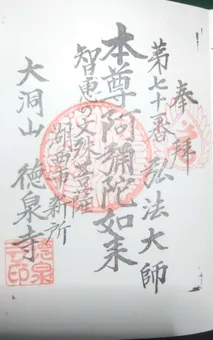 奉拝
第七十一番 弘法大師
本尊阿彌陀如来
智恵の文殊菩薩
湖西市新所
大洞山 徳泉寺